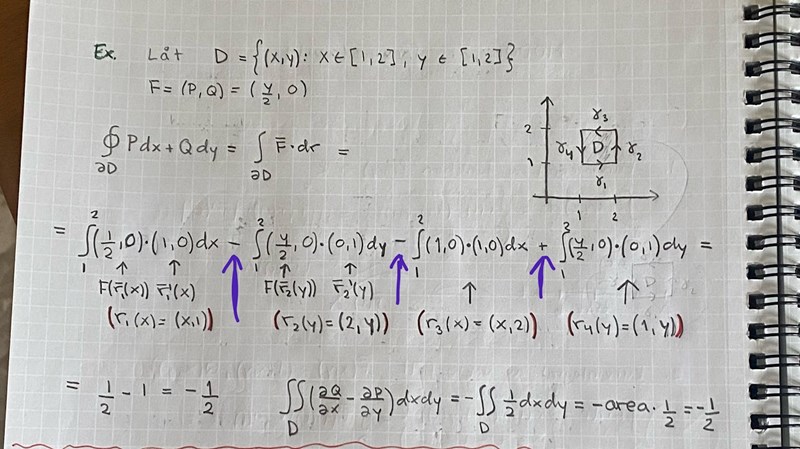 Ex. Låt D = {(x,y): x ∈ [1,2], y ∈ [1,2]}
F = (P,Q) = (y/2, 0)
∮_∂D Pdx + Qdy = ∫_∂D F̄·dr =
2 1 1 2 γ₃ γ₄ D γ₂ γ₁
= ∫₁² (1/2, 0)·(1,0)dx − ∫₁² (y/2, 0)·(0,1)dy − ∫₁² (1,0)·(1,0)dx + ∫₁² (y/2, 0)·(0,1)dy =
↑ ↑ ↑ ↑ ↑ ↑ ↑ ↑ ↑
F(r̄₁(x)) r̄₁'(x) F(r̄₂(y)) r̄₂'(y)
(r₁(x) = (x,1)) (r₂(y) = (2,y)) (r₃(x) = (x,2)) (r₄(y) = (1,y))
= 1/2 − 1 = −1/2 ∬_D (∂Q/∂x − ∂P/∂y) dxdy = −∬_D 1/2 dxdy = −area · 1/2 = −1/2